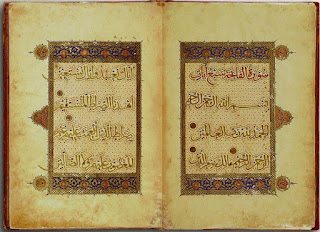 سورة الفاتحة سبع آيات
بسم الله الرحمن الرحيم
الحمد لله رب العالمين
الرحمن الرحيم ملك يوم الدين
إياك نعبد وإياك نستعين
اهدنا الصراط المستقيم
صراط الذين أنعمت عليهم غير
المغضوب عليهم ولا الضالين